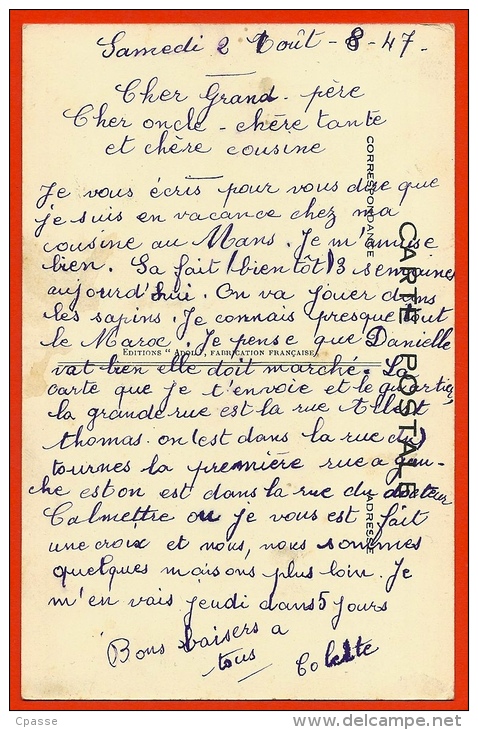 Samedi 2 Août - 8 - 47 -
Cher Grand - père
Cher oncle - chère tante
et chère cousine
Je vous écris pour vous dire que
je suis en vacance chez ma
cousine au Mans. Je m'amuse
bien. Sa fait (bientôt) 3 semaines
aujourd'hui. On va jouer dans
les sapins. Je connais presque tout
le Maroc. Je pense que Danielle
vat bien elle doit marché. La
carte que je t'envoie et le quartier,
la grande rue est la rue Albert
thomas. on (est dans la rue du)
tournes la première rue a gau-
che est on est dans la rue du docteur
Calmettre ou je vous est fait
une croix et nous, nous sommes
quelques maisons plus loin. Je
m'en vais jeudi dans 5 jours
Bons baisers a
tous Colette
CARTE POSTALE
CORRESPONDANCE
ADRESSE
EDITIONS " ADOL", FABRICATION FRANÇAISE,
Cpasse
www.delcampe.net